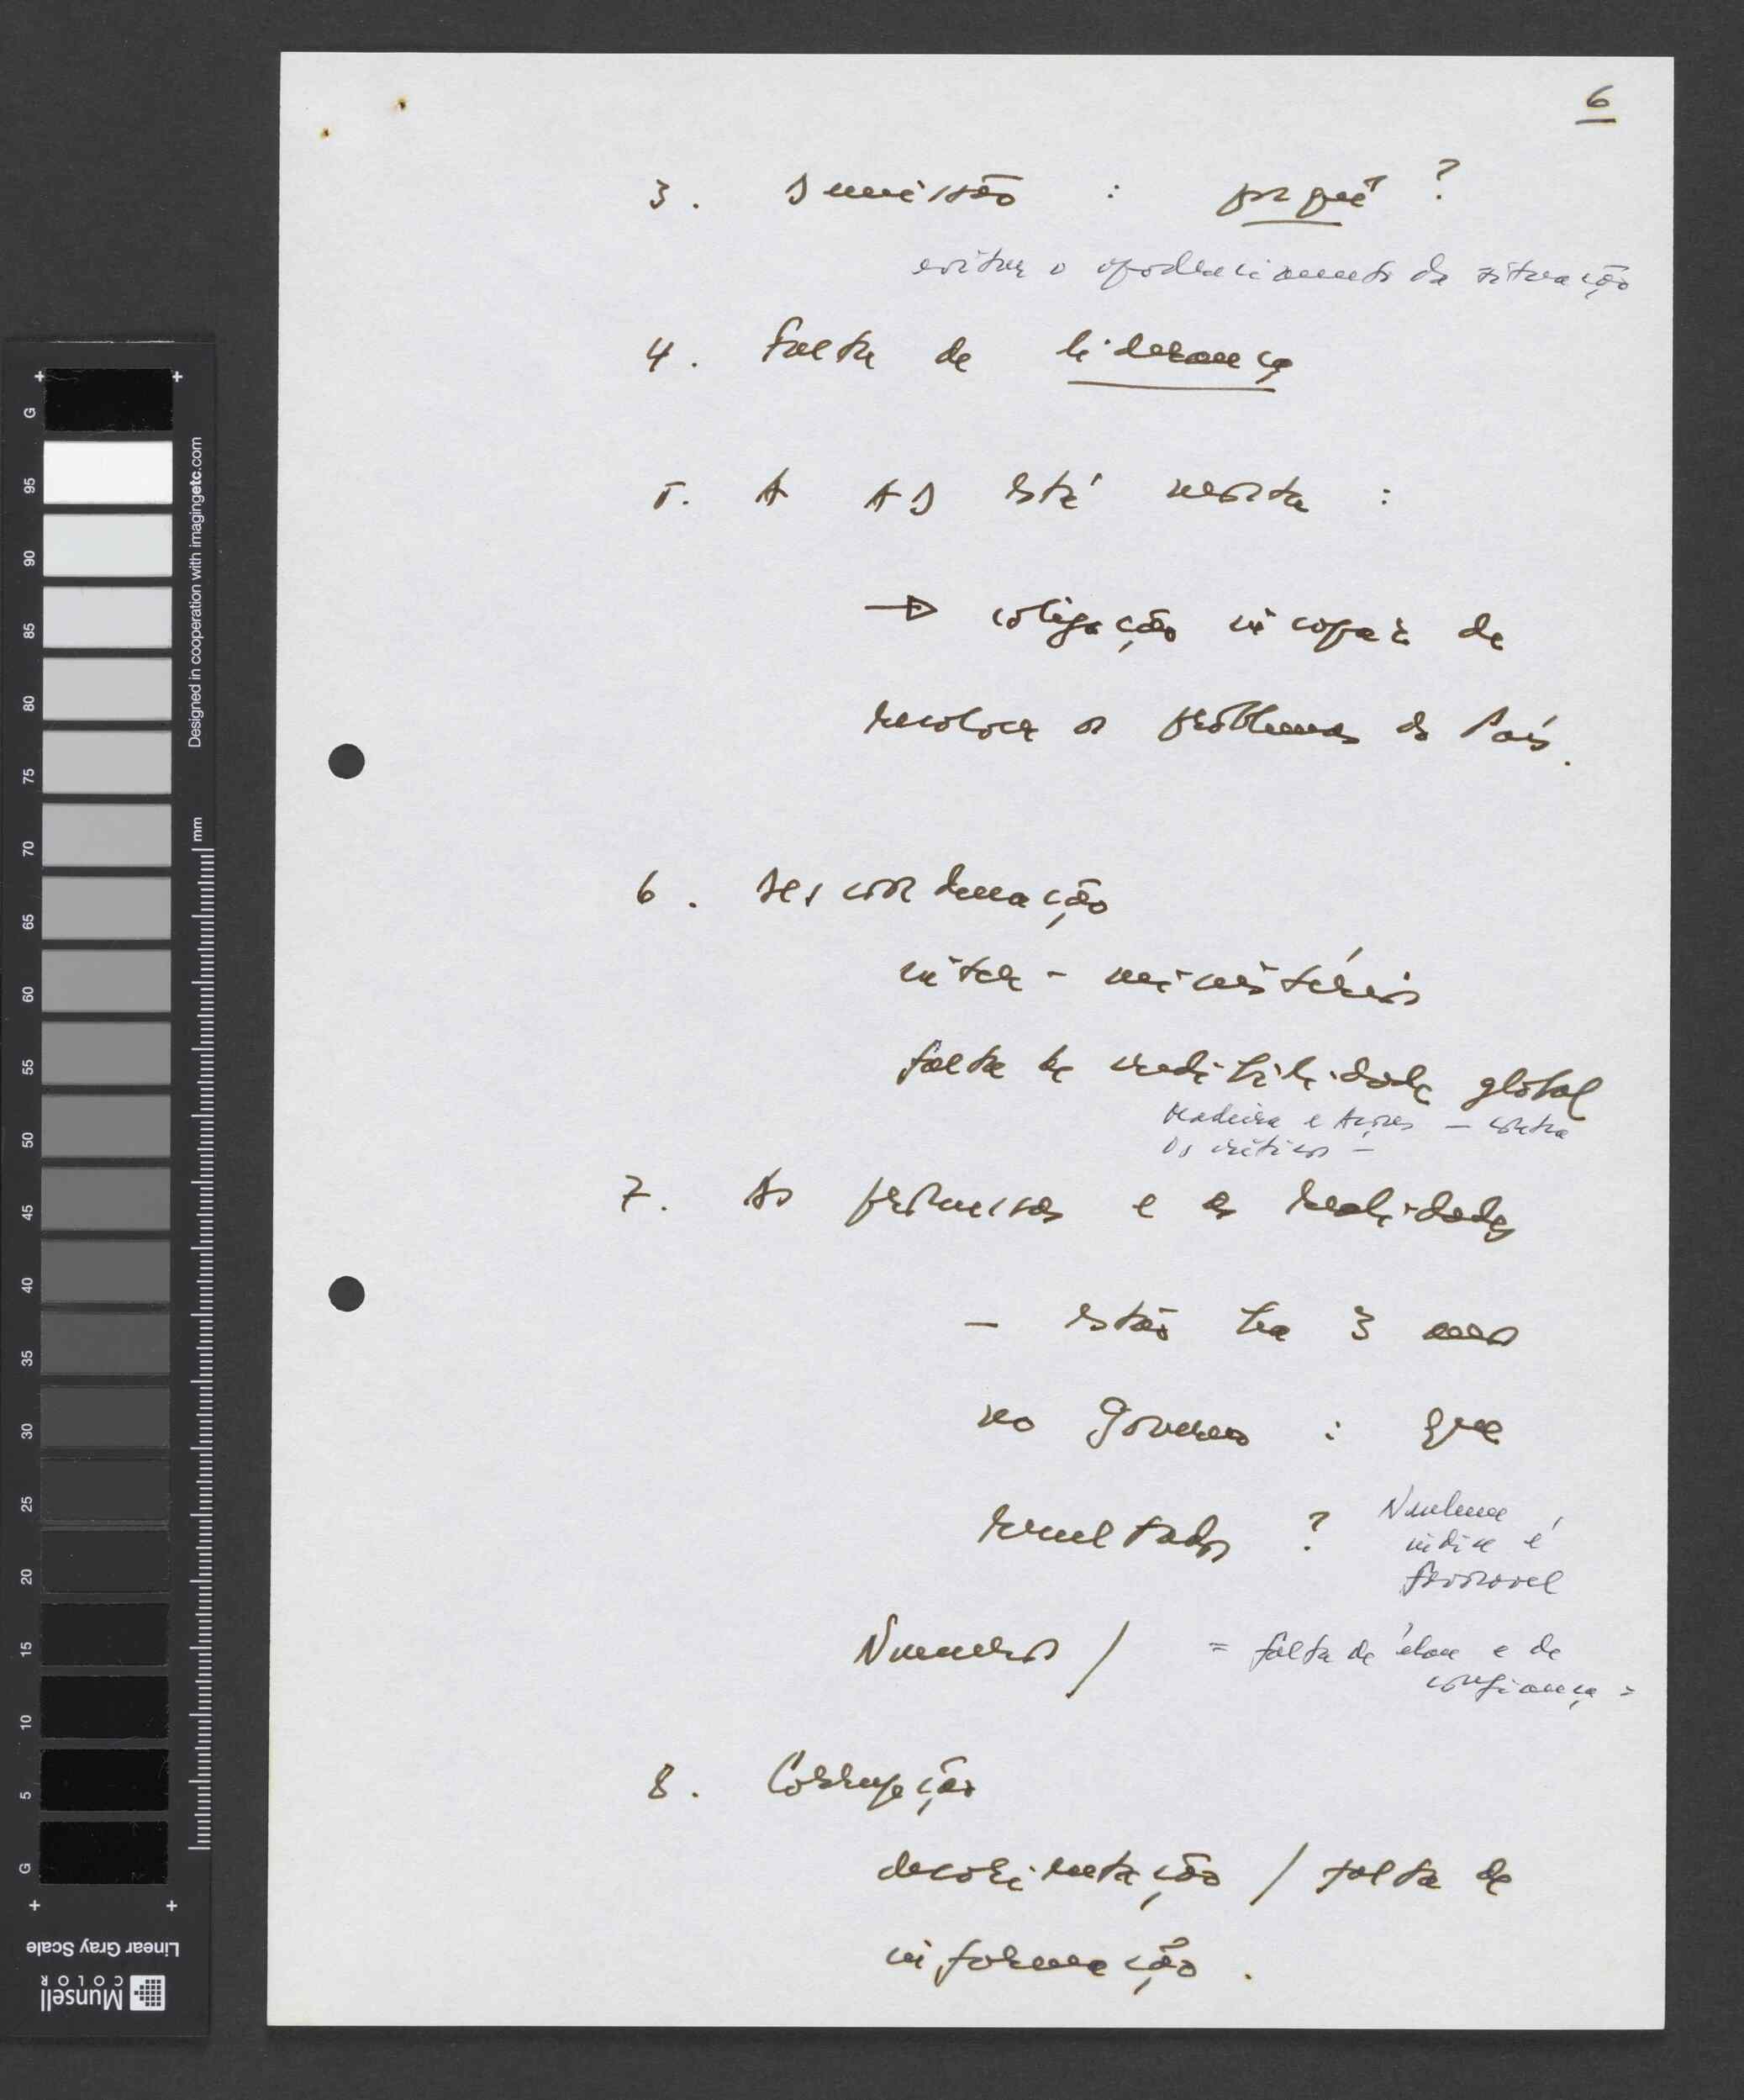 6
3. Demissão : porquê ?
evitar o apodrecimento da situação
4. Falta de liderança
5. A AD está morta :
→ coligação incapaz de
resolver os problemas do País.
6. Descoordenação
inter-ministérios
falta de credibilidade global
Madeira e Açores — contra
os críticos —
7. As promessas e as realidades
— estão há 3 anos
no Governo : que
resultados ?
Nenhum
índice é
favorável
Numeros /
= falta de élan e de
confiança =
8. Corrupção
desorientação / falta de
informação .
G
95
90
85
80
75
70
65
60
55
50
45
40
35
30
25
20
15
10
5
G
Designed in cooperation with imagingetc.com
mm
Linear Gray Scale
Munsell
COLOR